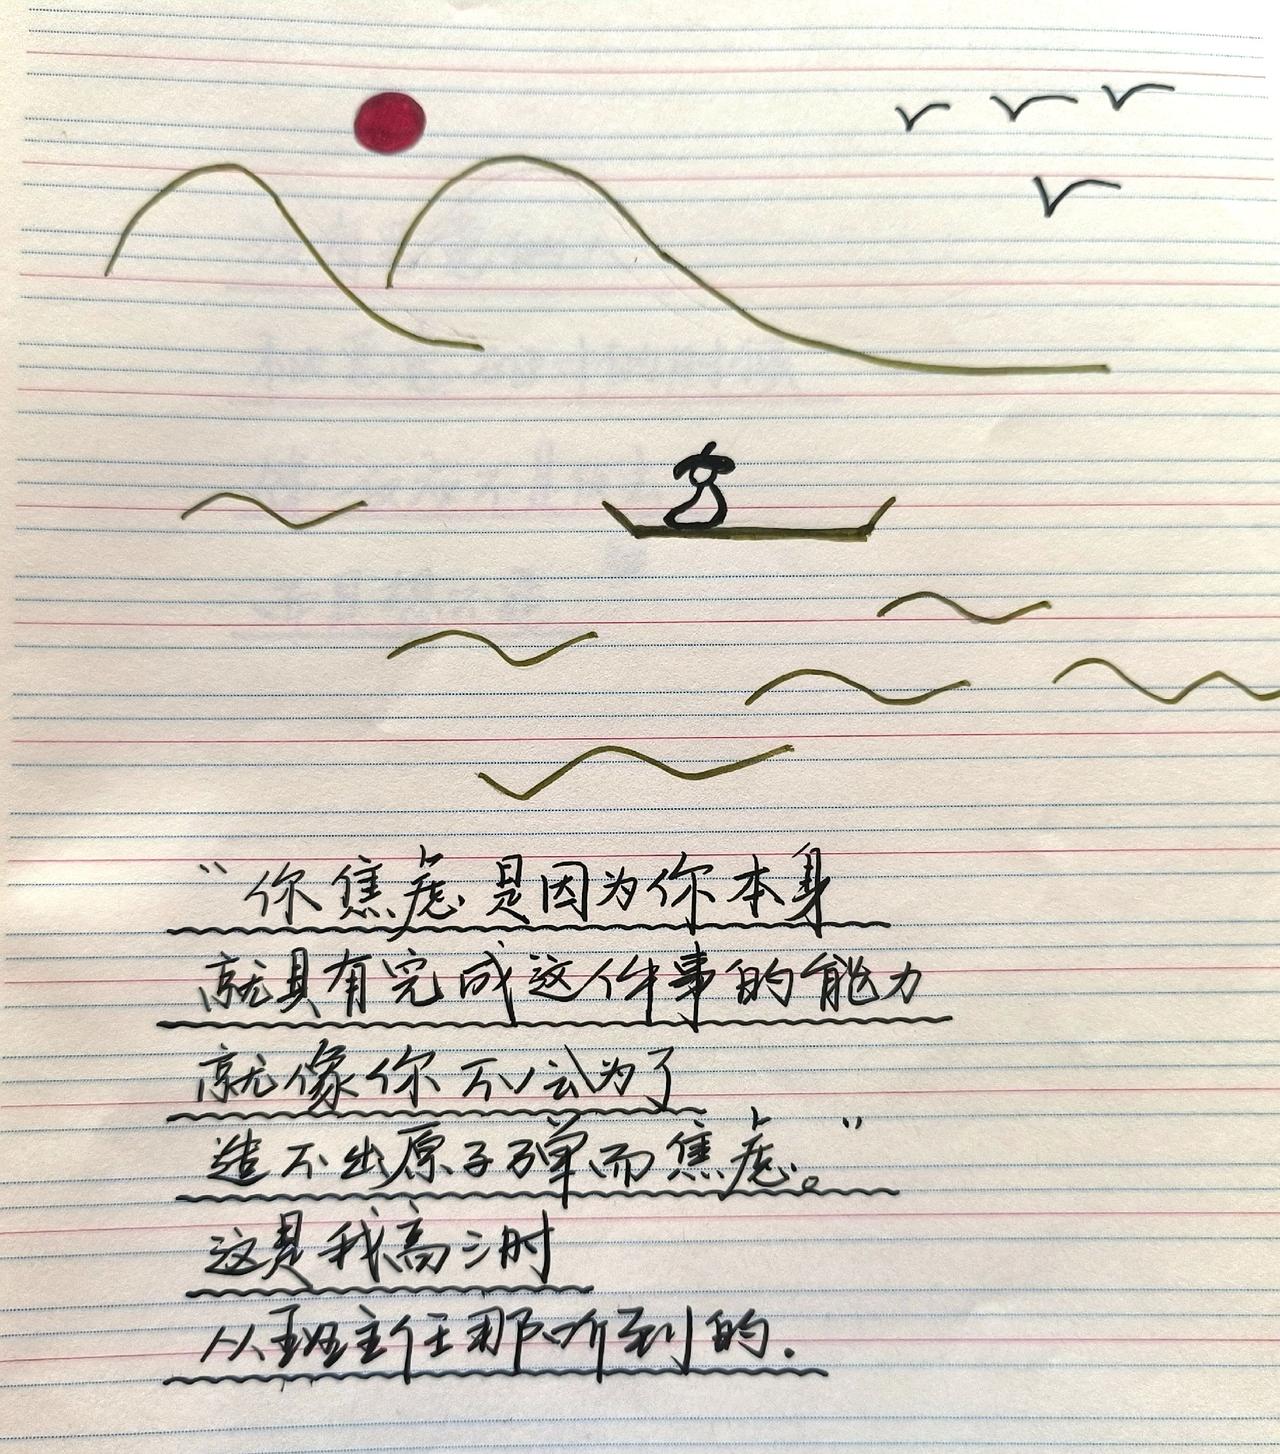 “你焦虑是因为你本身
就具有完成这件事的能力
就像你不会为了
造不出原子弹而焦虑。”
这是我高三时
从班主任那听到的.